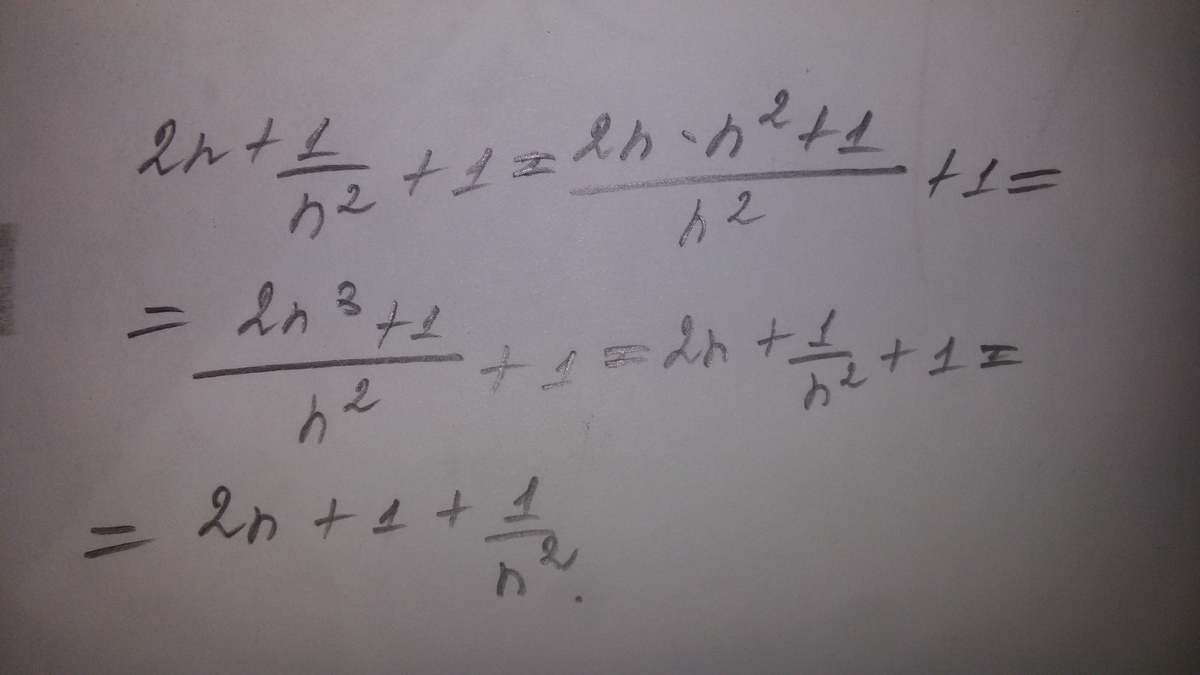 2n + 1/n² + 1 = (2n · n² + 1)/n² + 1 =
= (2n³ + 1)/n² + 1 = 2n + 1/n² + 1 =
= 2n + 1 + 1/n².